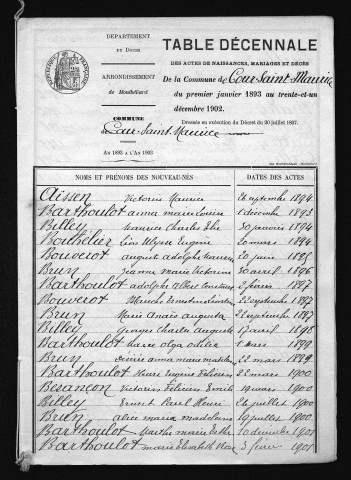 DÉPARTEMENT
DU DOUBS
ARRONDISSEMENT
de Montbéliard
COMMUNE
de Cour-Saint-Maurice
AN 1893 à L'AN 1903
TABLE DÉCENNALE
DES ACTES DE NAISSANCES, MARIAGES ET DÉCÈS
De la Commune de Cour-Saint-Maurice
du premier janvier 1893 au trente-et-un
décembre 1902.
Dressée en exécution du Décret du 20 juillet 1807.
NOMS ET PRÉNOMS DES NOUVEAU-NÉS DATES DES ACTES
Aissen Victorin Maurice 26 septembre 1894
Barthoulot anna marie louise 1 décembre 1893
Billey Maurice Charles Elie 30 janvier 1894
Bouthelier Léon Ulysse Eugène 20 mars 1894
Bouverot auguste adolphe 20 juin 1895
Brun Jeanne marie Victorine 30 avril 1896
Barthoulot adolphe Albert 2 février 1897
Bouverot Blanche 22 septembre 1897
Brun Marie Anaïs augusta 22 septembre 1897
Billey Georges Charles auguste 17 avril 1898
Barthoulot marie olga odile 1 mars 1899
Brun anna marie 22 mars 1899
Barthoulot Henri Eugène 22 mars 1900
Besançon Victorin Félicien Emile 19 mars 1900
Billey Ernest Paul Henri 24 juillet 1900
Brun alice maria madeleine 19 juillet 1900
Barthoulot Marthe marie 10 décembre 1901
Barthoulot marie Elisabeth 3 février 1901